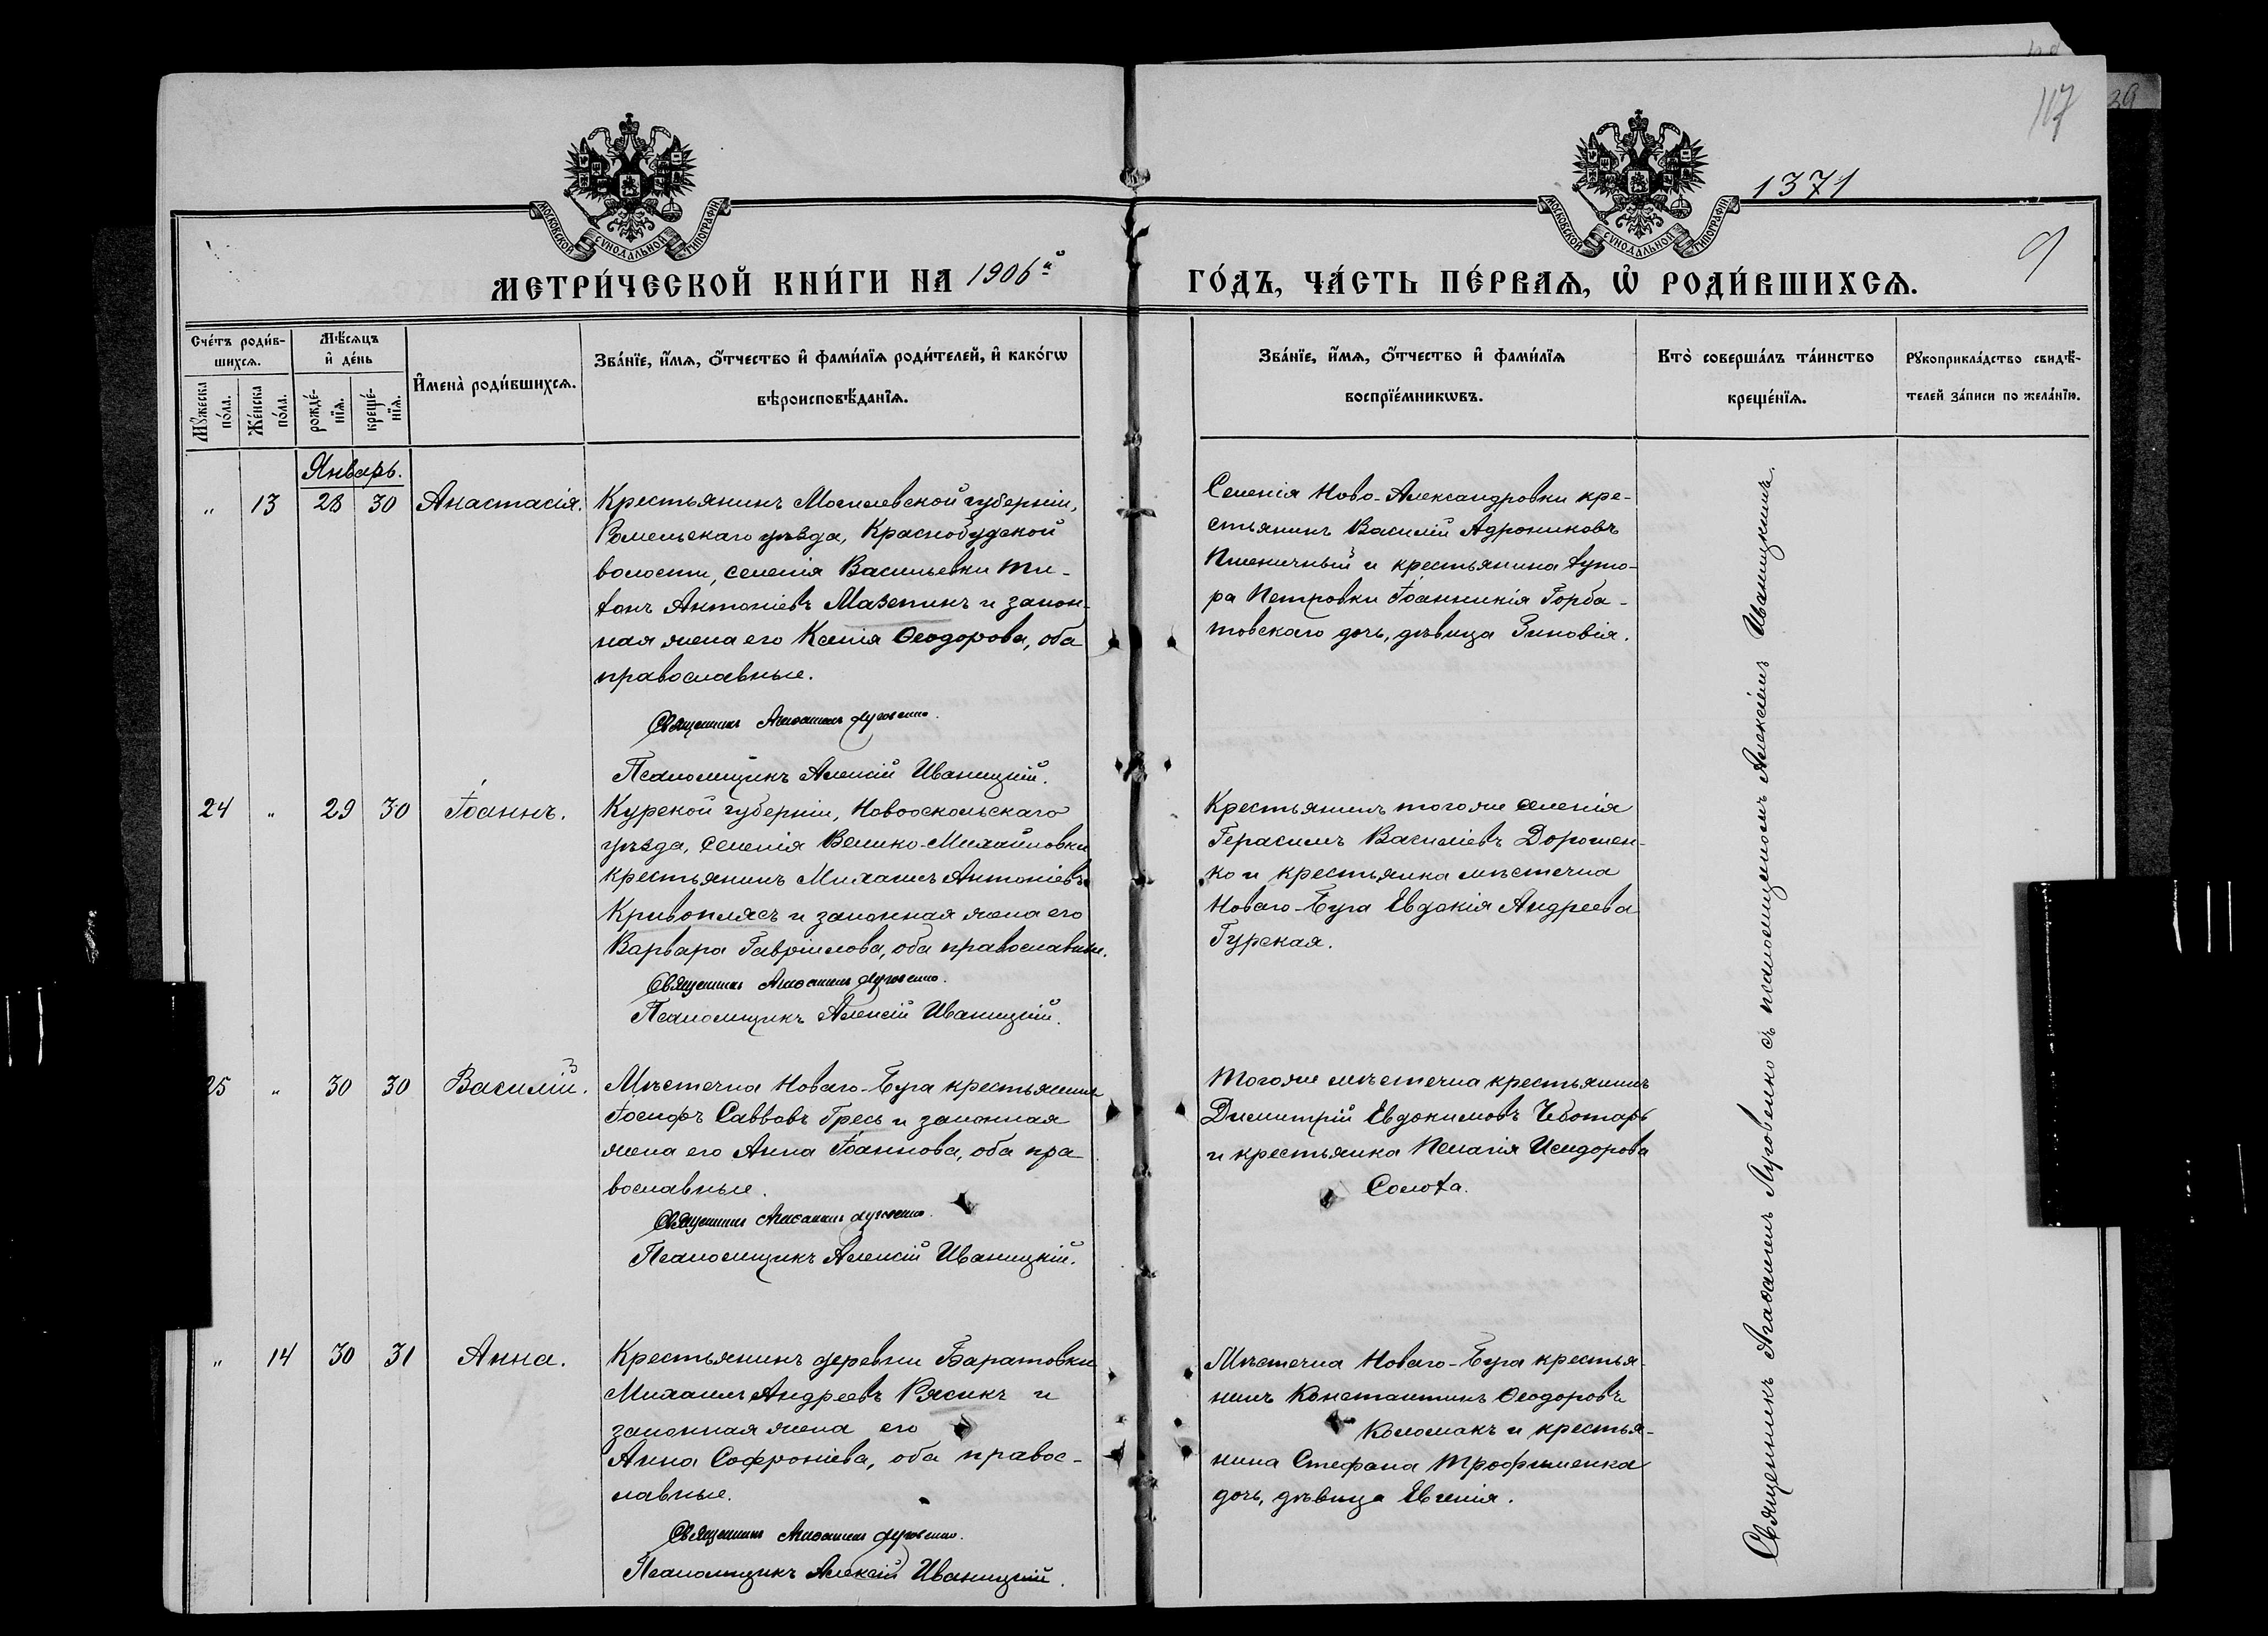 117
39
1371
9
МОСКОВСКОЙ СѴНОДАЛЬНОЙ ТИПОГРАФІИ
МОСКОВСКОЙ СѴНОДАЛЬНОЙ ТИПОГРАФІИ
МЕТРИ́ЧЕСКОЙ КНИ́ГИ НА 1906й ГО́ДЪ, ЧА́СТЬ ПЕ́РВАѦ, Ѡ҆ РОДИ́ВШИХСѦ.
Сче́тъ роди́в-
шихсѧ.
Мꙋ́жеска по́ла.
Же́нска по́ла.
Мѣ́сѧцъ
и҆ де́нь
рожде́-
нїѧ.
креще́-
нїѧ.
И҆мена̀ роди́вшихсѧ.
Зва́нїе, и҆́мѧ, ѻ҆́тчество и҆ фами́лїѧ роди́телей, и҆ како́гѡ
вѣроисповѣ́данїѧ.
Зва́нїе, и҆́мѧ, ѻ҆́тчество и҆ фами́лїѧ
воспрїе́мникѡвъ.
Кто̀ соверша́лъ та́инство
креще́нїѧ.
Рꙋкоприкла́дство свидѣ́-
телей за́писи по жела́нїю.
Январь.
„ 13 28 30 Анастасія.
Крестьянинъ Могилевской губерніи,
Гомельскаго уѣзда, Краснобудской
волости, селенія Васильевки Ти-
хонъ Антоніевъ Мазепинъ и закон-
ная жена его Ксенія Ѳеодорова, оба
православные.
Священникъ Агаѳангелъ Луговенко.
Псаломщикъ Алексій Иваницкій.
Селенія Ново-Александровки кре-
стьянинъ Василій Адрониковъ
Пшеничный и крестьянина хуто-
ра Петровки Іоанникія Горба-
товскаго дочь, дѣвица Зиновія.
24 „ 29 30 Іоаннъ.
Курской губерніи, Новооскольскаго
уѣзда, селенія Велико-Михайловки
крестьянинъ Михаилъ Антоніевъ
Кривоплясъ и законная жена его
Варвара Гавріилова, оба православные.
Священникъ Агаѳангелъ Луговенко.
Псаломщикъ Алексій Иваницкій.
Крестьянинъ тогоже селенія
Герасимъ Василіевъ Дорошен-
ко и крестьянка мѣстечка
Новаго-Буга Евдокія Андреева
Гурская.
25 „ 30 30 Василій.
3
Мѣстечка Новаго-Буга крестьянинъ
Іосифъ Саввовъ Гресь и законная
жена его Анна Іоаннова, оба пра
вославные.
Священникъ Агаѳангелъ Луговенко.
Псаломщикъ Алексій Иваницкій.
Тогоже мѣстечка крестьянинъ
Димитрій Евдокимовъ Чботарь
и крестьянка Пелагія Исидорова
Солоха.
„ 14 30 31 Анна.
Крестьянинъ деревни Баратовки
Михаилъ Андреевъ Рясикъ и
законная жена его
Анна Софроніева, оба правос-
лавные.
Священникъ Агаѳангелъ Луговенко.
Псаломщикъ Алексій Иваницкій.
Мѣстечка Новаго-Буга крестья-
нинъ Константинъ Ѳеодоровъ
Коломакъ и крестья-
нина Стефана Трофименка
дочь, дѣвица Евгенія.
Священникъ Агаѳангелъ Луговенко съ псаломщикомъ Алексіемъ Иваницкимъ.